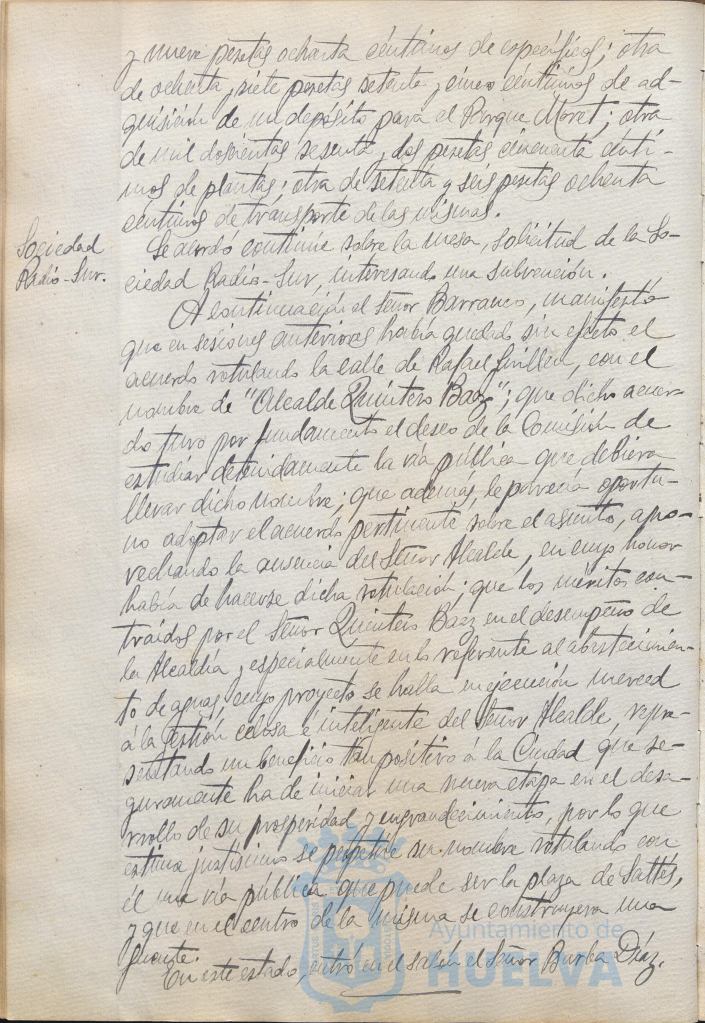 y nueve pesetas ochenta céntimos de específicos; otra
de ochenta y siete pesetas setenta y cinco céntimos de ad-
quisición de un depósito para el Parque Moret; otra
de mil doscientas sesenta y dos pesetas cincuenta cénti-
mos de plantas; otra de setenta y seis pesetas ochenta
céntimos de transporte de las mismas.
Sociedad
Radio-Sur.
Se acordo continúe sobre la mesa, solicitud de la So-
ciedad Radio-Sur, interesando una subvención.
A continuación el Señor Barranco, manifestó
que en sesiones anteriores había quedado sin efecto el
acuerdo rotulando la calle de Rafael Guillén, con el
nombre de "Alcalde Quintero Baez"; que dicho acuer-
do tuvo por fundamento el deseo de la Comisión de
estudiar detenidamente la vía pública que debiera
llevar dicho nombre; que además, le parecía oportu-
no adoptar el acuerdo pertinente sobre el asunto, apro-
vechando la ausencia del Señor Alcalde, en cuyo honor
había de hacerse dicha rotulación; que los méritos con-
traídos por el Señor Quintero Baez en el desempeño de
la Alcaldía y especialmente en lo referente al abastecimien-
to de aguas, cuyo proyecto se halla en ejecución merced
á la gestión celosa é inteligente del Señor Alcalde, repre-
sentando un beneficio tan positivo á la Ciudad que se-
guramente ha de iniciar una nueva etapa en el desa-
rrollo de su prosperidad y engrandecimiento, por lo que
estima justísimo se perpetúe su nombre rotulando con
él una vía pública que puede ser la plaza de Saltés,
y que en el centro de la misma se construyera una
fuente.
En este estado, entró en el salón el Señor Burba Díaz.
Ayuntamiento de
HUELVA